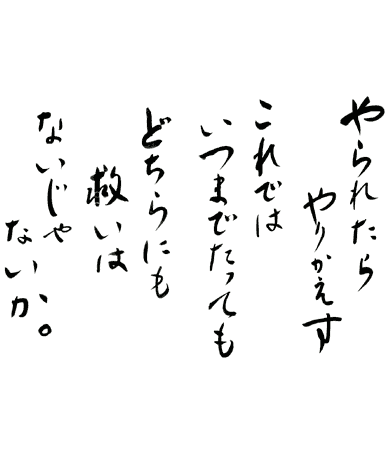 やられたら
やりかえす
これでは
いつまでたっても
どちらにも
救いは
ないじゃ
ないか。